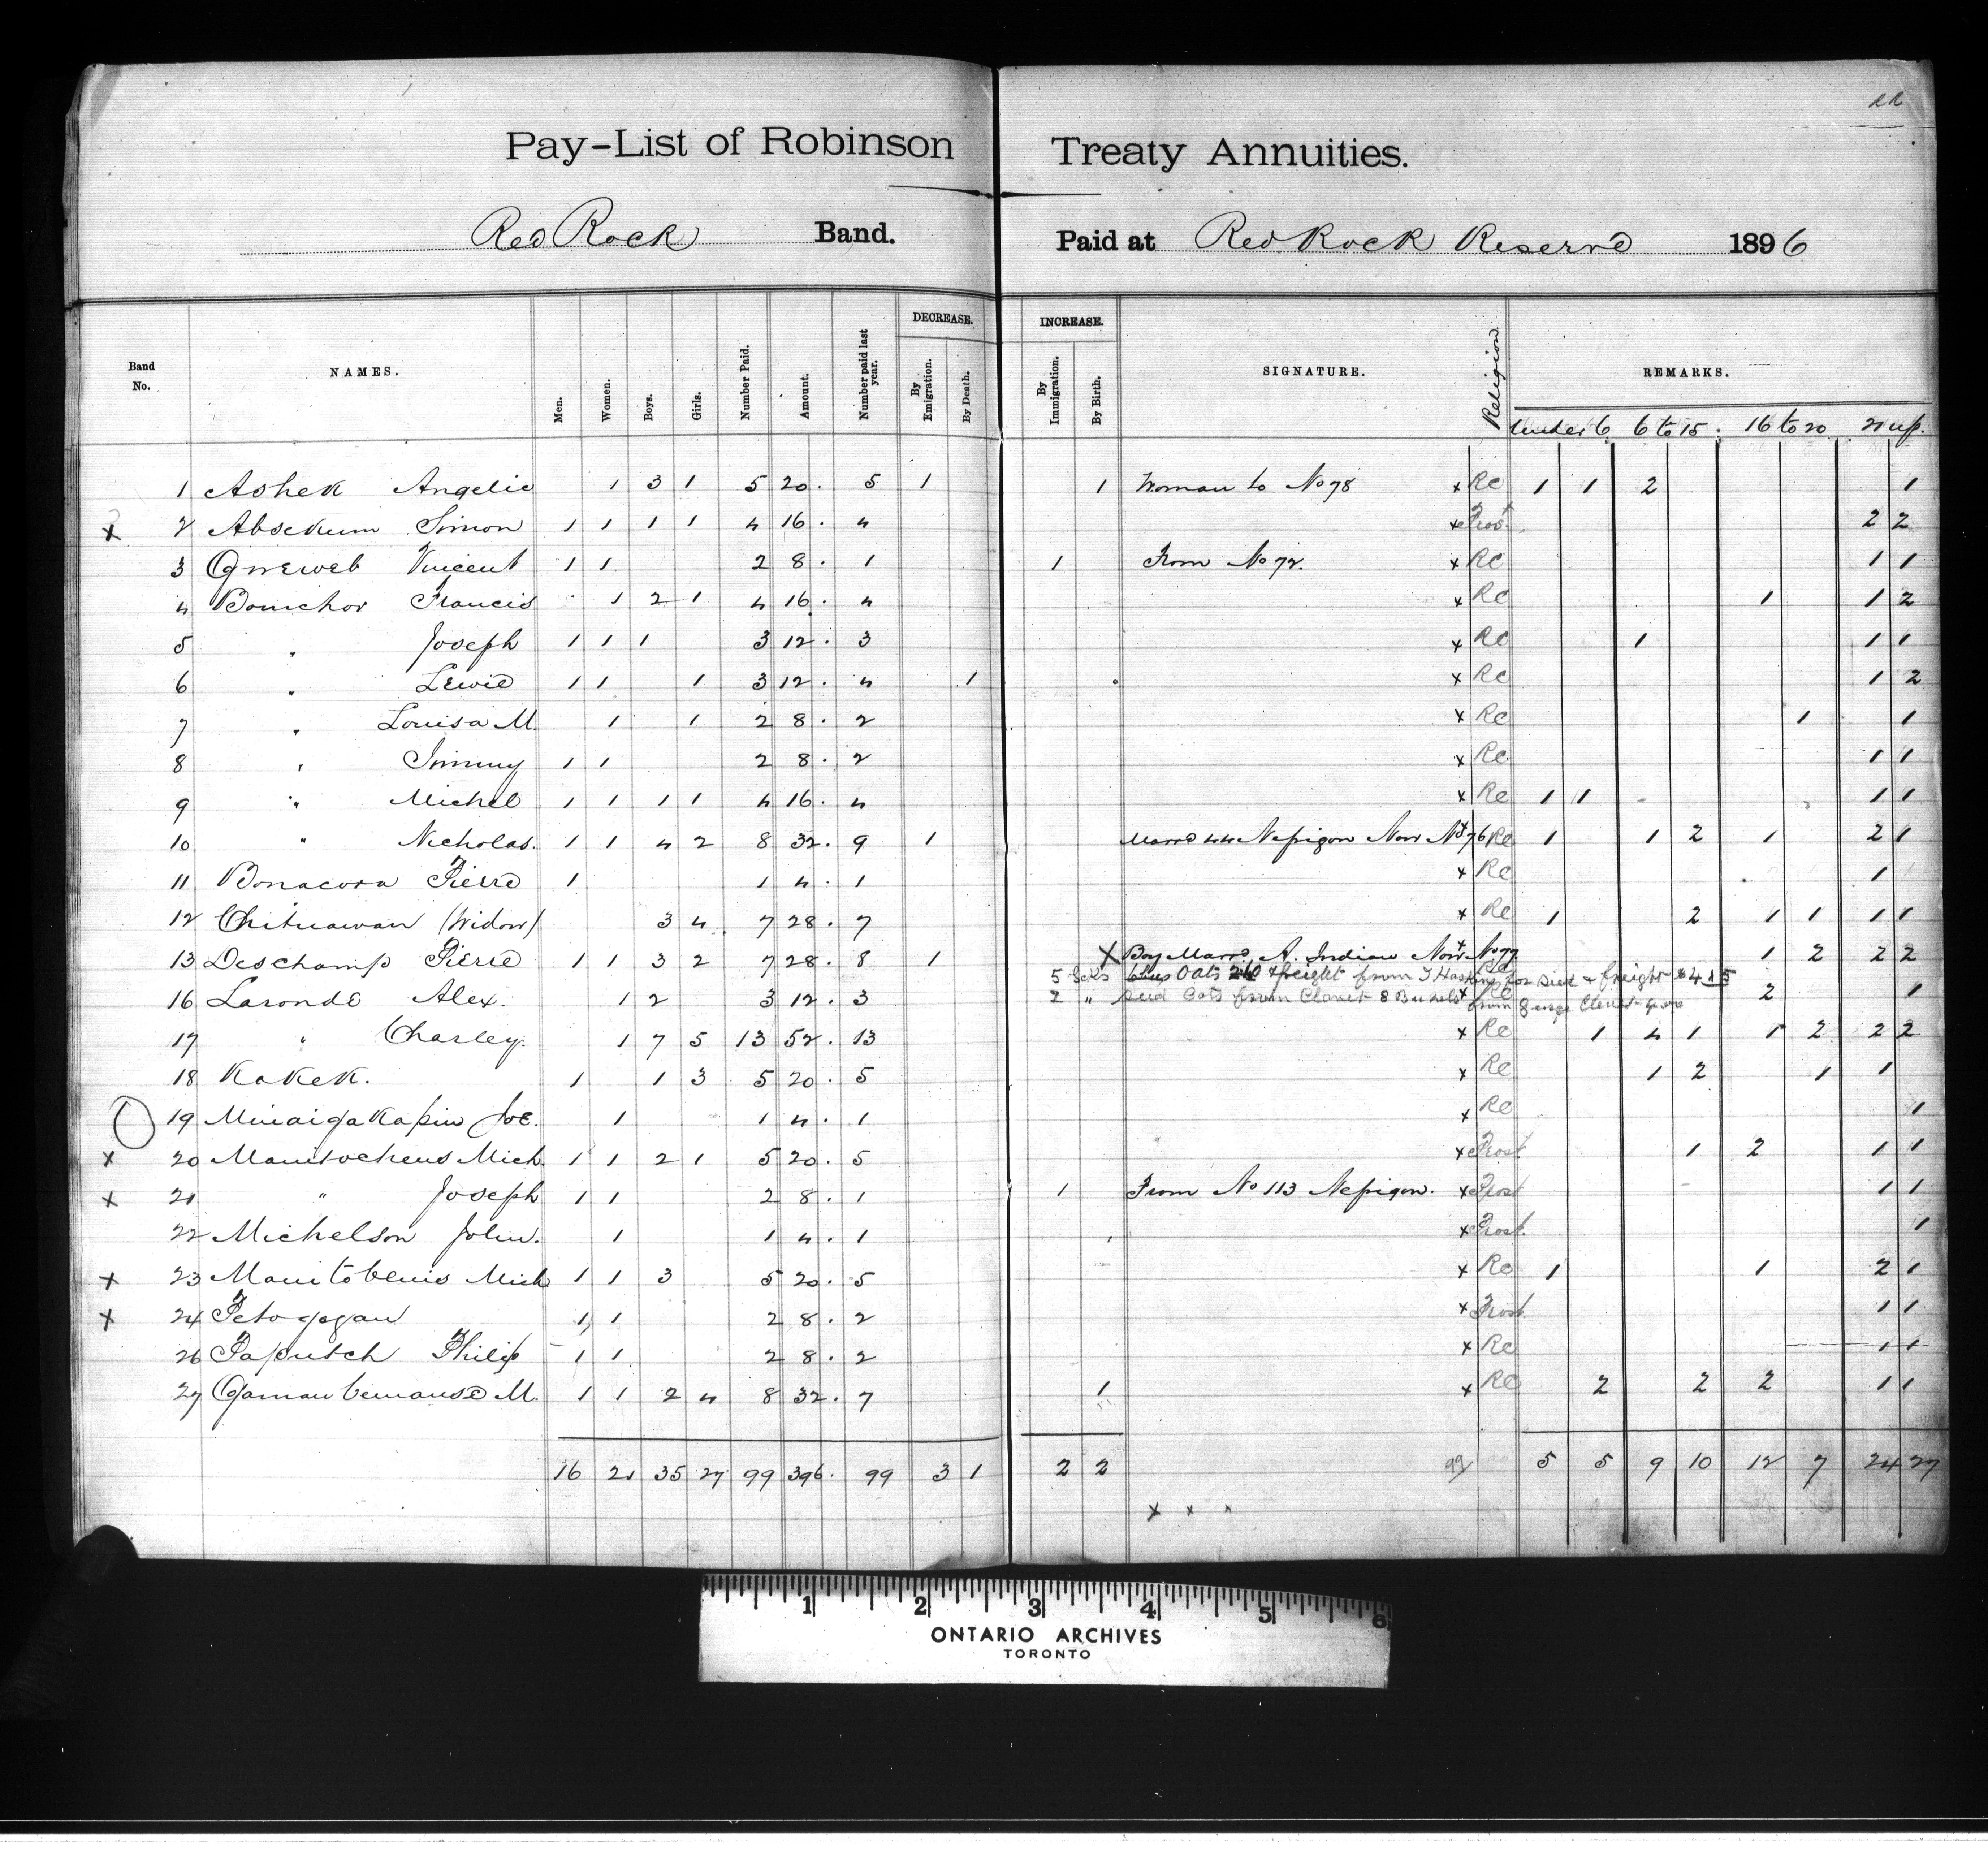 RR
Pay-List of Robinson Treaty Annuities.
Red Rock Band. Paid at Red Rock Reserve 1896
Band No. NAMES. Men. Women. Boys. Girls. Number Paid. Amount. Number paid last year. DECREASE. By Emigration. By Death. INCREASE. By Immigration. By Birth. SIGNATURE. Religion REMARKS.
Under 6 6 to 15. 16 to 20 21 up.
1 Ashek Angelic 1 3 1 5 20. 5 1 1 Woman to No 78 x RC 1 1 2 1
x 2 Absekum Simon 1 1 1 1 4 16. 4 x Prot 2 2
3 Vincent 1 1 2 8. 1 1 From No 72. x RC 1 1
4 Bouchor Francis 1 2 1 4 16. 4 x RC 1 1 2
5 " Joseph 1 1 1 3 12. 3 x RC 1 1 1
6 " Lewie 1 1 1 3 12. 4 1 x RC 1 2
7 " Louisa M. 1 1 2 8. 2 x RC 1 1
8 " Jimmy 1 1 2 8. 2 x RC 1 1
9 " Michel 1 1 1 1 4 16. 4 x RC 1 1 1 1
10 " Nicholas. 1 1 4 2 8 32. 9 1 Marrd 44 Nepigon Now No 76 x RC 1 1 2 1 2 1
11 Bonacora Pierre 1 1 4. 1 x RC 1
12 Chituawan (Widow) 3 4 7 28. 7 x RC 1 2 1 1 1 1
13 Deschamp Pierre 1 1 3 2 7 28. 8 1 x Boy Marrd A. Indian Now No 77 x 1 2 2 2
5 Scks Oats & freight from for Sied & freight 4 15
16 Laronde Alex. 1 2 3 12. 3 x RC 2 1
2 " Seed Oats from Clouet 8 Bushels from Clouet
17 " Charley. 1 7 5 13 52. 13 x RC 1 4 1 1 2 2 2
18 Kakek. 1 1 3 5 20. 5 x RC 1 2 1 1
19 Minaigakapiw Joe. 1 1 4. 1 x RC 1
x 20 Manitochens Mich. 1 1 2 1 5 20. 5 x Prost 1 2 1 1
x 21 " Joseph 1 1 2 8. 1 1 From No 113 Nepigon. x Prost 1 1
22 Michelson John. 1 1 4. 1 x Prost. 1
x 23 Manitobenis Mich 1 1 3 5 20. 5 x RC 1 1 2 1
x 24 Petogogan 1 1 2 8. 2 x Prost. 1 1
26 Paputch Philip 1 1 2 8. 2 x RC 1 1
27 Gamanbemanse M. 1 1 2 4 8 32. 7 1 x RC 2 2 2 1 1
16 21 35 27 99 396. 99 3 1 2 2 99 5 5 9 10 12 7 24 27
x x x
1 2 3 4 5 6
ONTARIO ARCHIVES
TORONTO